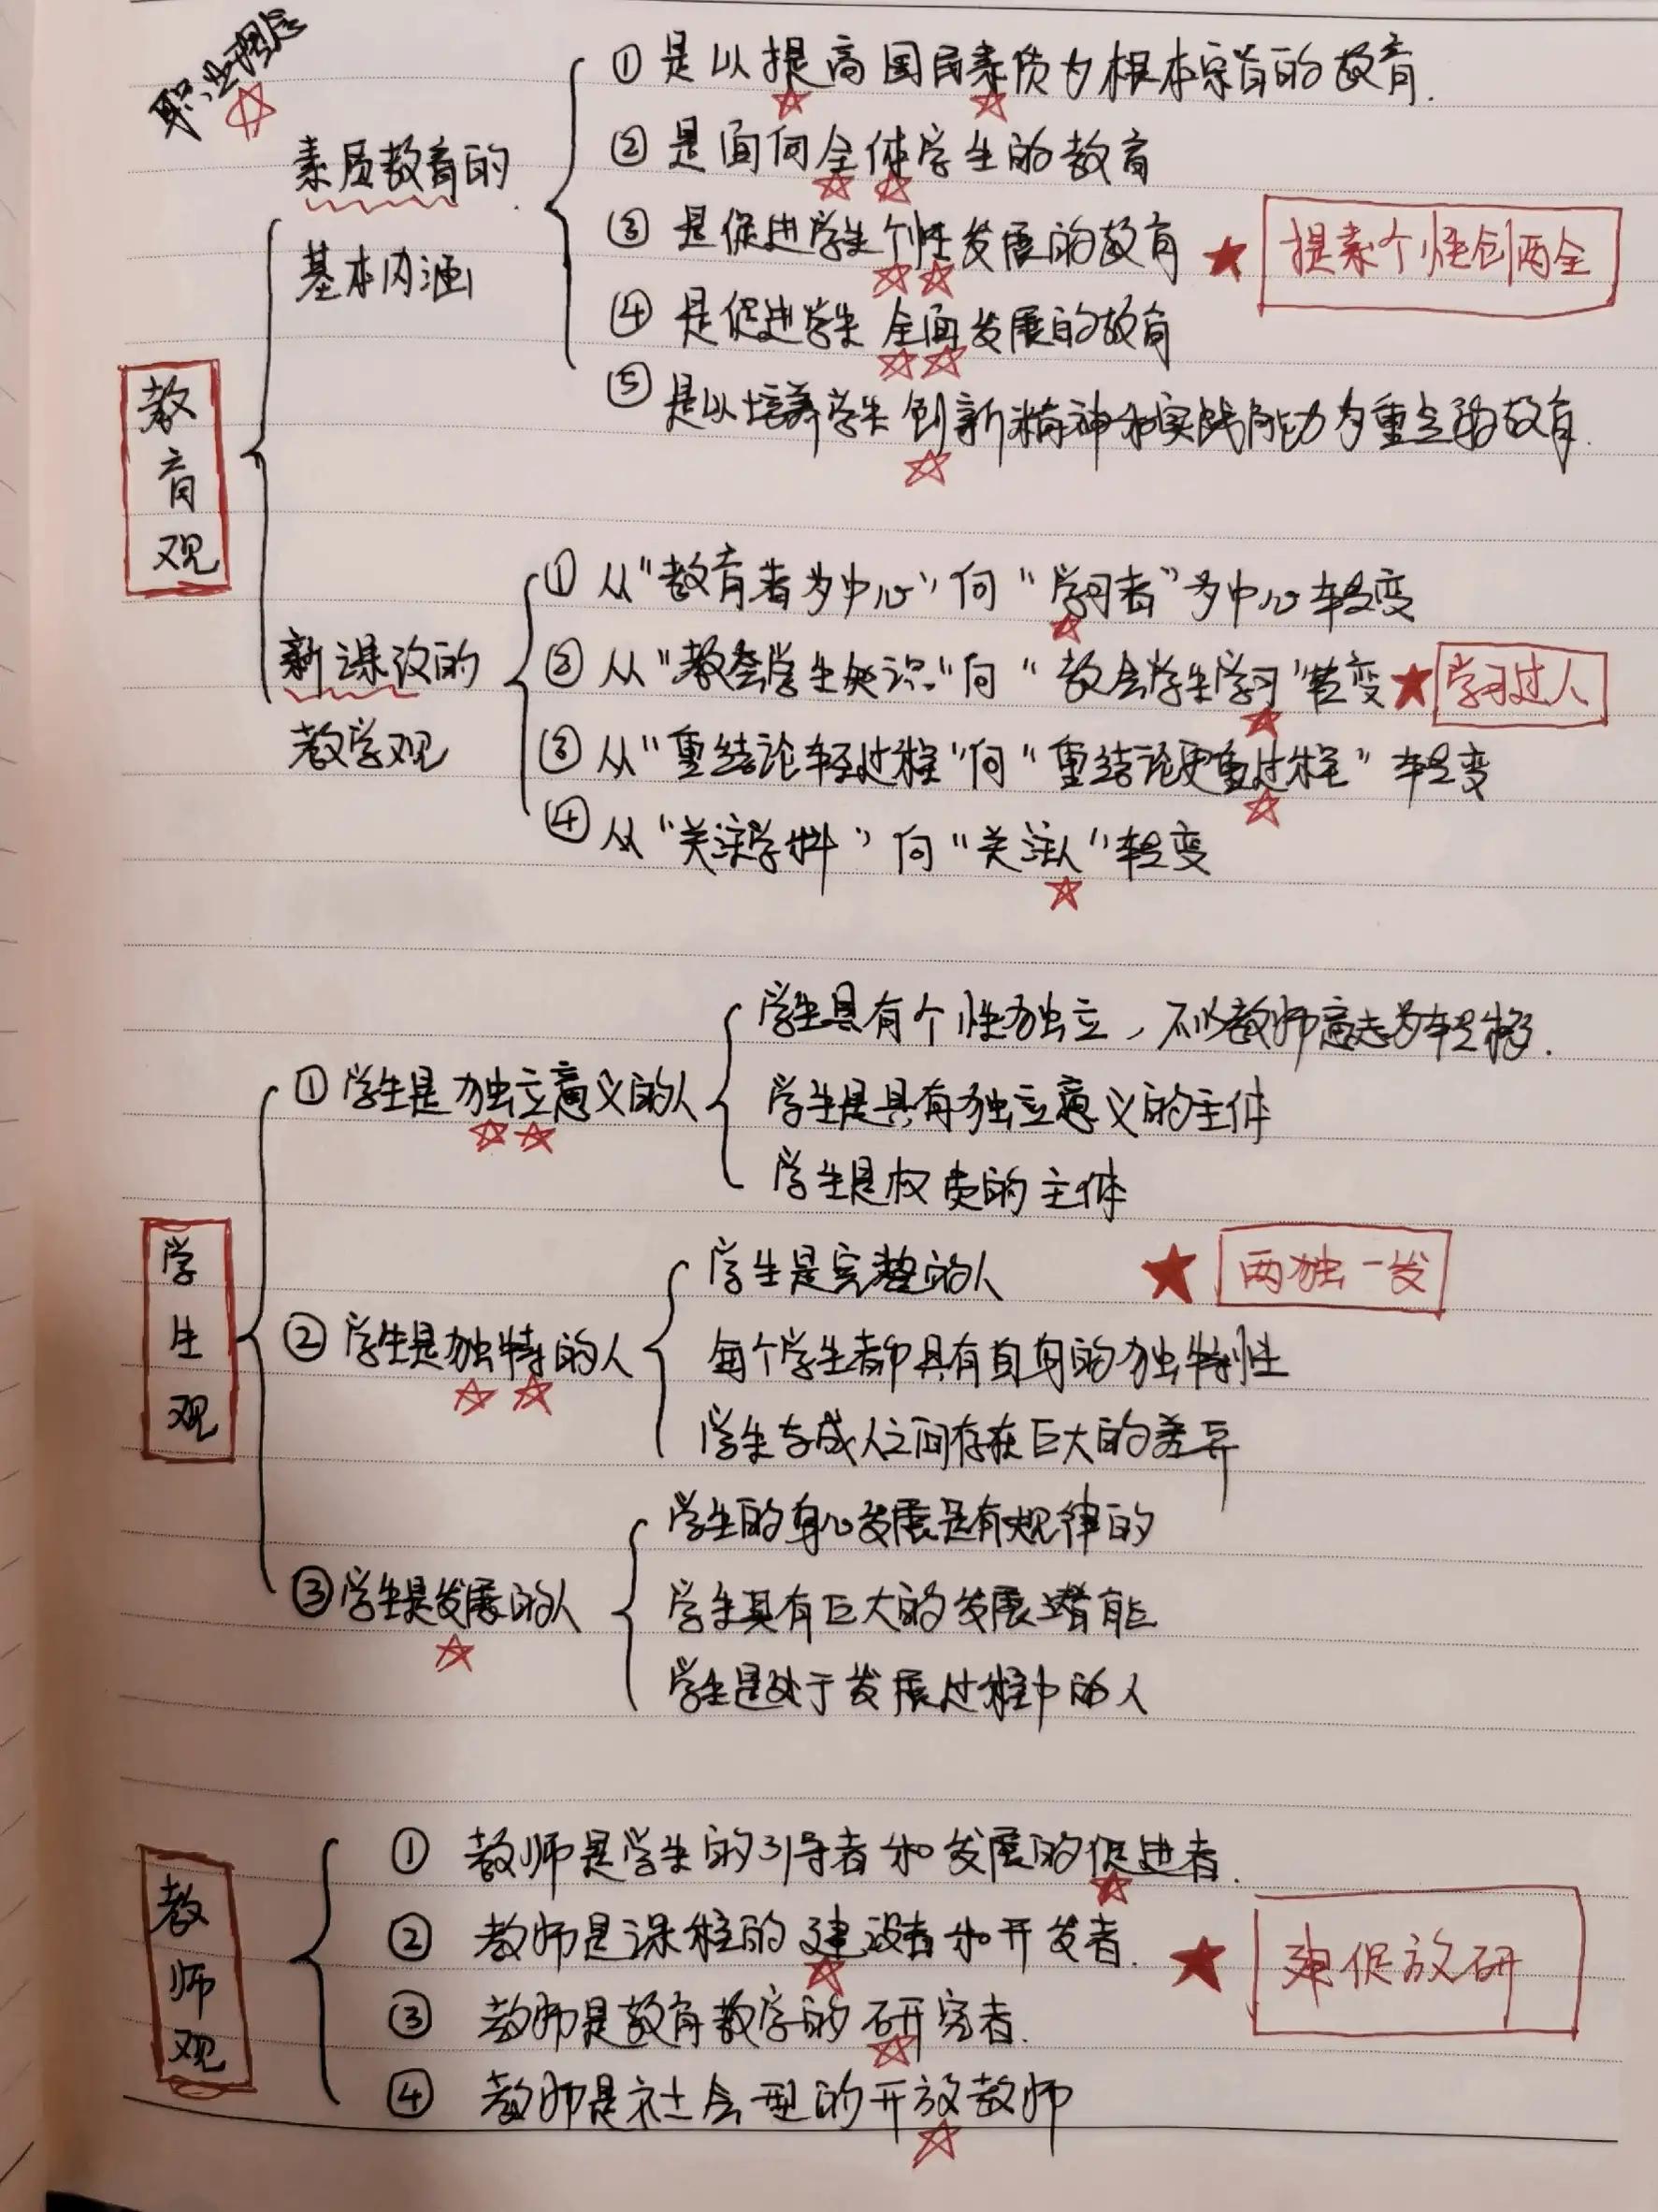 职业理念
素质教育的
基本内涵
① 是以提高国民素质为根本宗旨的教育.
② 是面向全体学生的教育
③ 是促进学生个性发展的教育
④ 是促进学生全面发展的教育
⑤ 是以培养学生创新精神和实践能力为重点的教育.
提素个性创两全
教育观
新课改的
教学观
① 从“教育者为中心”向“学习者”为中心转变
② 从“教会学生知识”向“教会学生学习”转变
③ 从“重结论轻过程”向“重结论更重过程”转变
④ 从“关注学科”向“关注人”转变
学习过人
学生观
① 学生是独立意义的人
学生具有个性独立，不以教师意志为转移.
学生是具有独立意义的主体
学生是权责的主体
② 学生是独特的人
学生是完整的人
每个学生都具有自身的独特性
学生与成人之间存在巨大的差异
两独一发
③ 学生是发展的人
学生的身心发展是有规律的
学生具有巨大的发展潜能
学生是处于发展过程中的人
教师观
① 教师是学生的引导者和发展的促进者.
② 教师是课程的建设者和开发者.
③ 教师是教育教学的研究者.
④ 教师是社会型的开放教师
建促放研